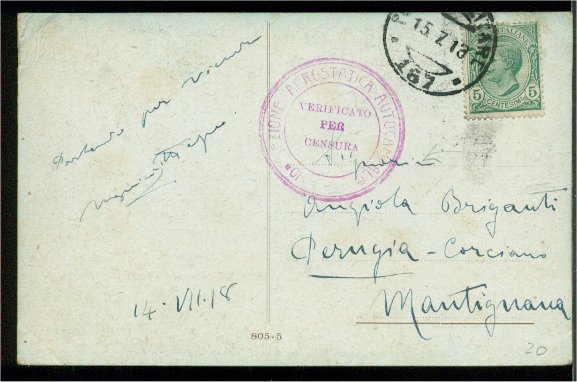 15.7.18
157
POSTE ITALIANE
5 5
CENTESIMI
10ª SEZIONE AEROSTATICA AUTOCAMPALE
VERIFICATO
PER
CENSURA
Partendo per
Signorina
Angiola Briganti
Perugia - Corciano
Mantignana
14. VII. 18
805-5
20